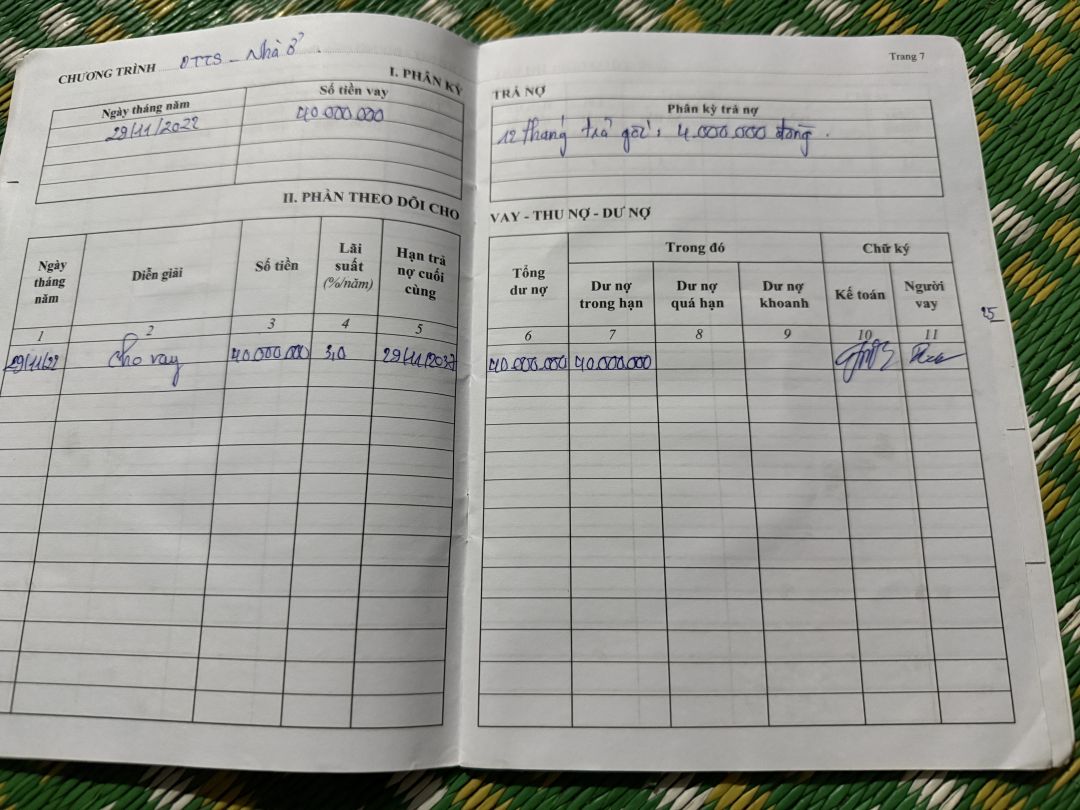 CHƯƠNG TRÌNH ĐTTS - Nhà ở
I. PHÂN KỲ
Ngày tháng năm Số tiền vay
29/11/2022 40.000.000
II. PHẦN THEO DÕI CHO
Ngày tháng năm Diễn giải Số tiền Lãi suất (%/năm) Hạn trả nợ cuối cùng
1 2 3 4 5
29/11/22 cho vay 40.000.000 3,0
Trang 7
TRẢ NỢ
Phân kỳ trả nợ
12 tháng trả gốc: 4.000.000 đồng.
VAY - THU NỢ - DƯ NỢ
Tổng dư nợ Trong đó Chữ ký
Dư nợ trong hạn Dư nợ quá hạn Dư nợ khoanh Kế toán Người vay
6 7 8 9 10 11
40.000.000 40.000.000
25